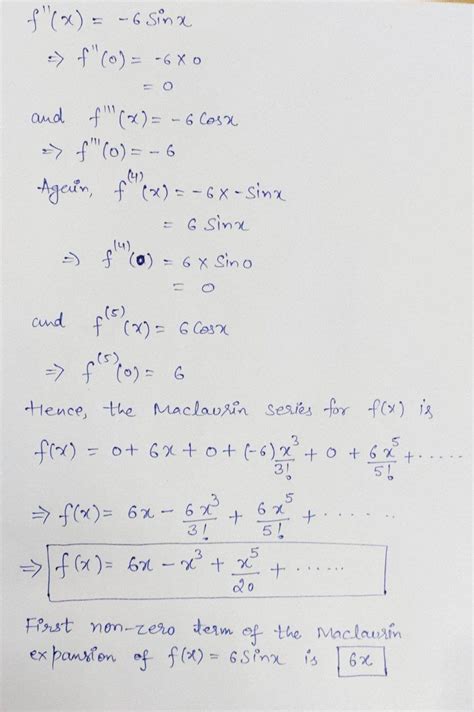 f''(x) = -6 Sinx
⇒ f''(0) = -6 × 0
= 0
and f'''(x) = -6 Cosx
⇒ f'''(0) = -6
Again, f⁽⁴⁾(x) = -6 × -Sinx
= 6 Sinx
⇒ f⁽⁴⁾(0) = 6 × Sin0
= 0
and f⁽⁵⁾(x) = 6 Cosx
⇒ f⁽⁵⁾(0) = 6
Hence, the Maclaurin series for f(x) is
f(x) = 0 + 6x + 0 + (-6) x³/3! + 0 + 6x⁵/5! + ......
⇒ f(x) = 6x - 6x³/3! + 6x⁵/5! + ......
⇒ f(x) = 6x - x³ + x⁵/20 + ......
First non-zero term of the Maclaurin
expansion of f(x) = 6 Sinx is 6x